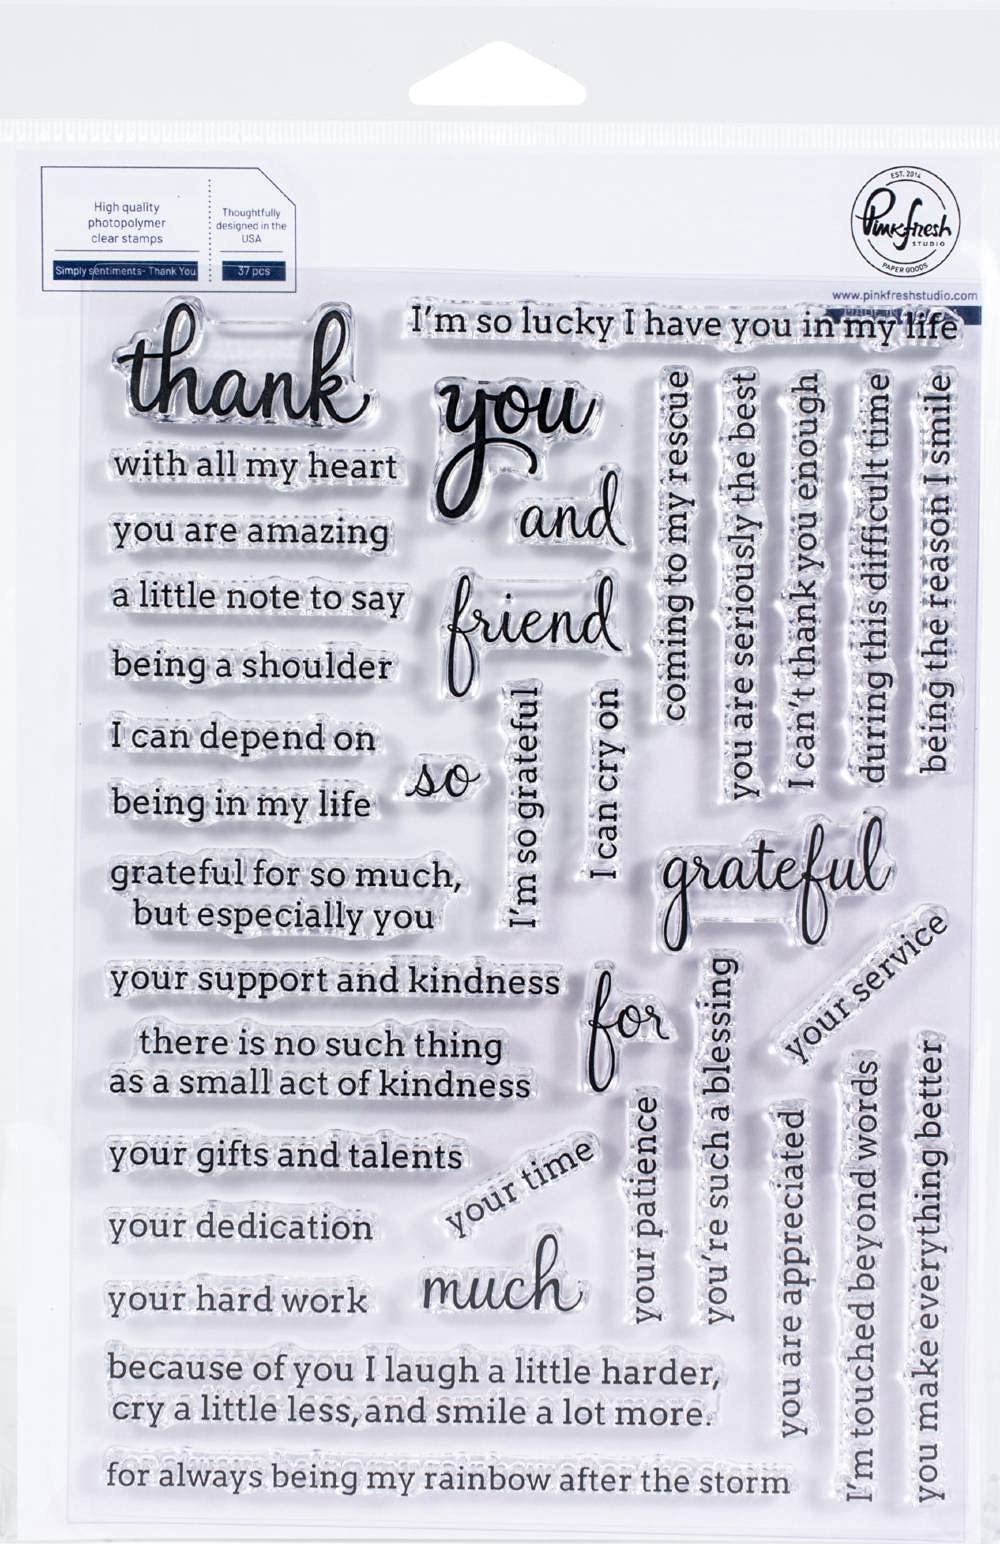 High quality
photopolymer
clear stamps
Simply sentiments- Thank You
Thoughtfully
designed in the
USA
37 pcs
EST. 2014
Pinkfresh
STUDIO
PAPER GOODS
www.pinkfreshstudio.com
thank
I'm so lucky I have you in my life
you
with all my heart
and
you are amazing
a little note to say
friend
being a shoulder
I can depend on
so
being in my life
grateful for so much,
but especially you
I'm so grateful
I can cry on
coming to my rescue
you are seriously the best
I can't thank you enough
during this difficult time
being the reason I smile
grateful
your support and kindness
for
your service
there is no such thing
as a small act of kindness
your gifts and talents
your time
your dedication
your hard work
much
your patience
you're such a blessing
you are appreciated
I'm touched beyond words
you make everything better
because of you I laugh a little harder,
cry a little less, and smile a lot more.
for always being my rainbow after the storm